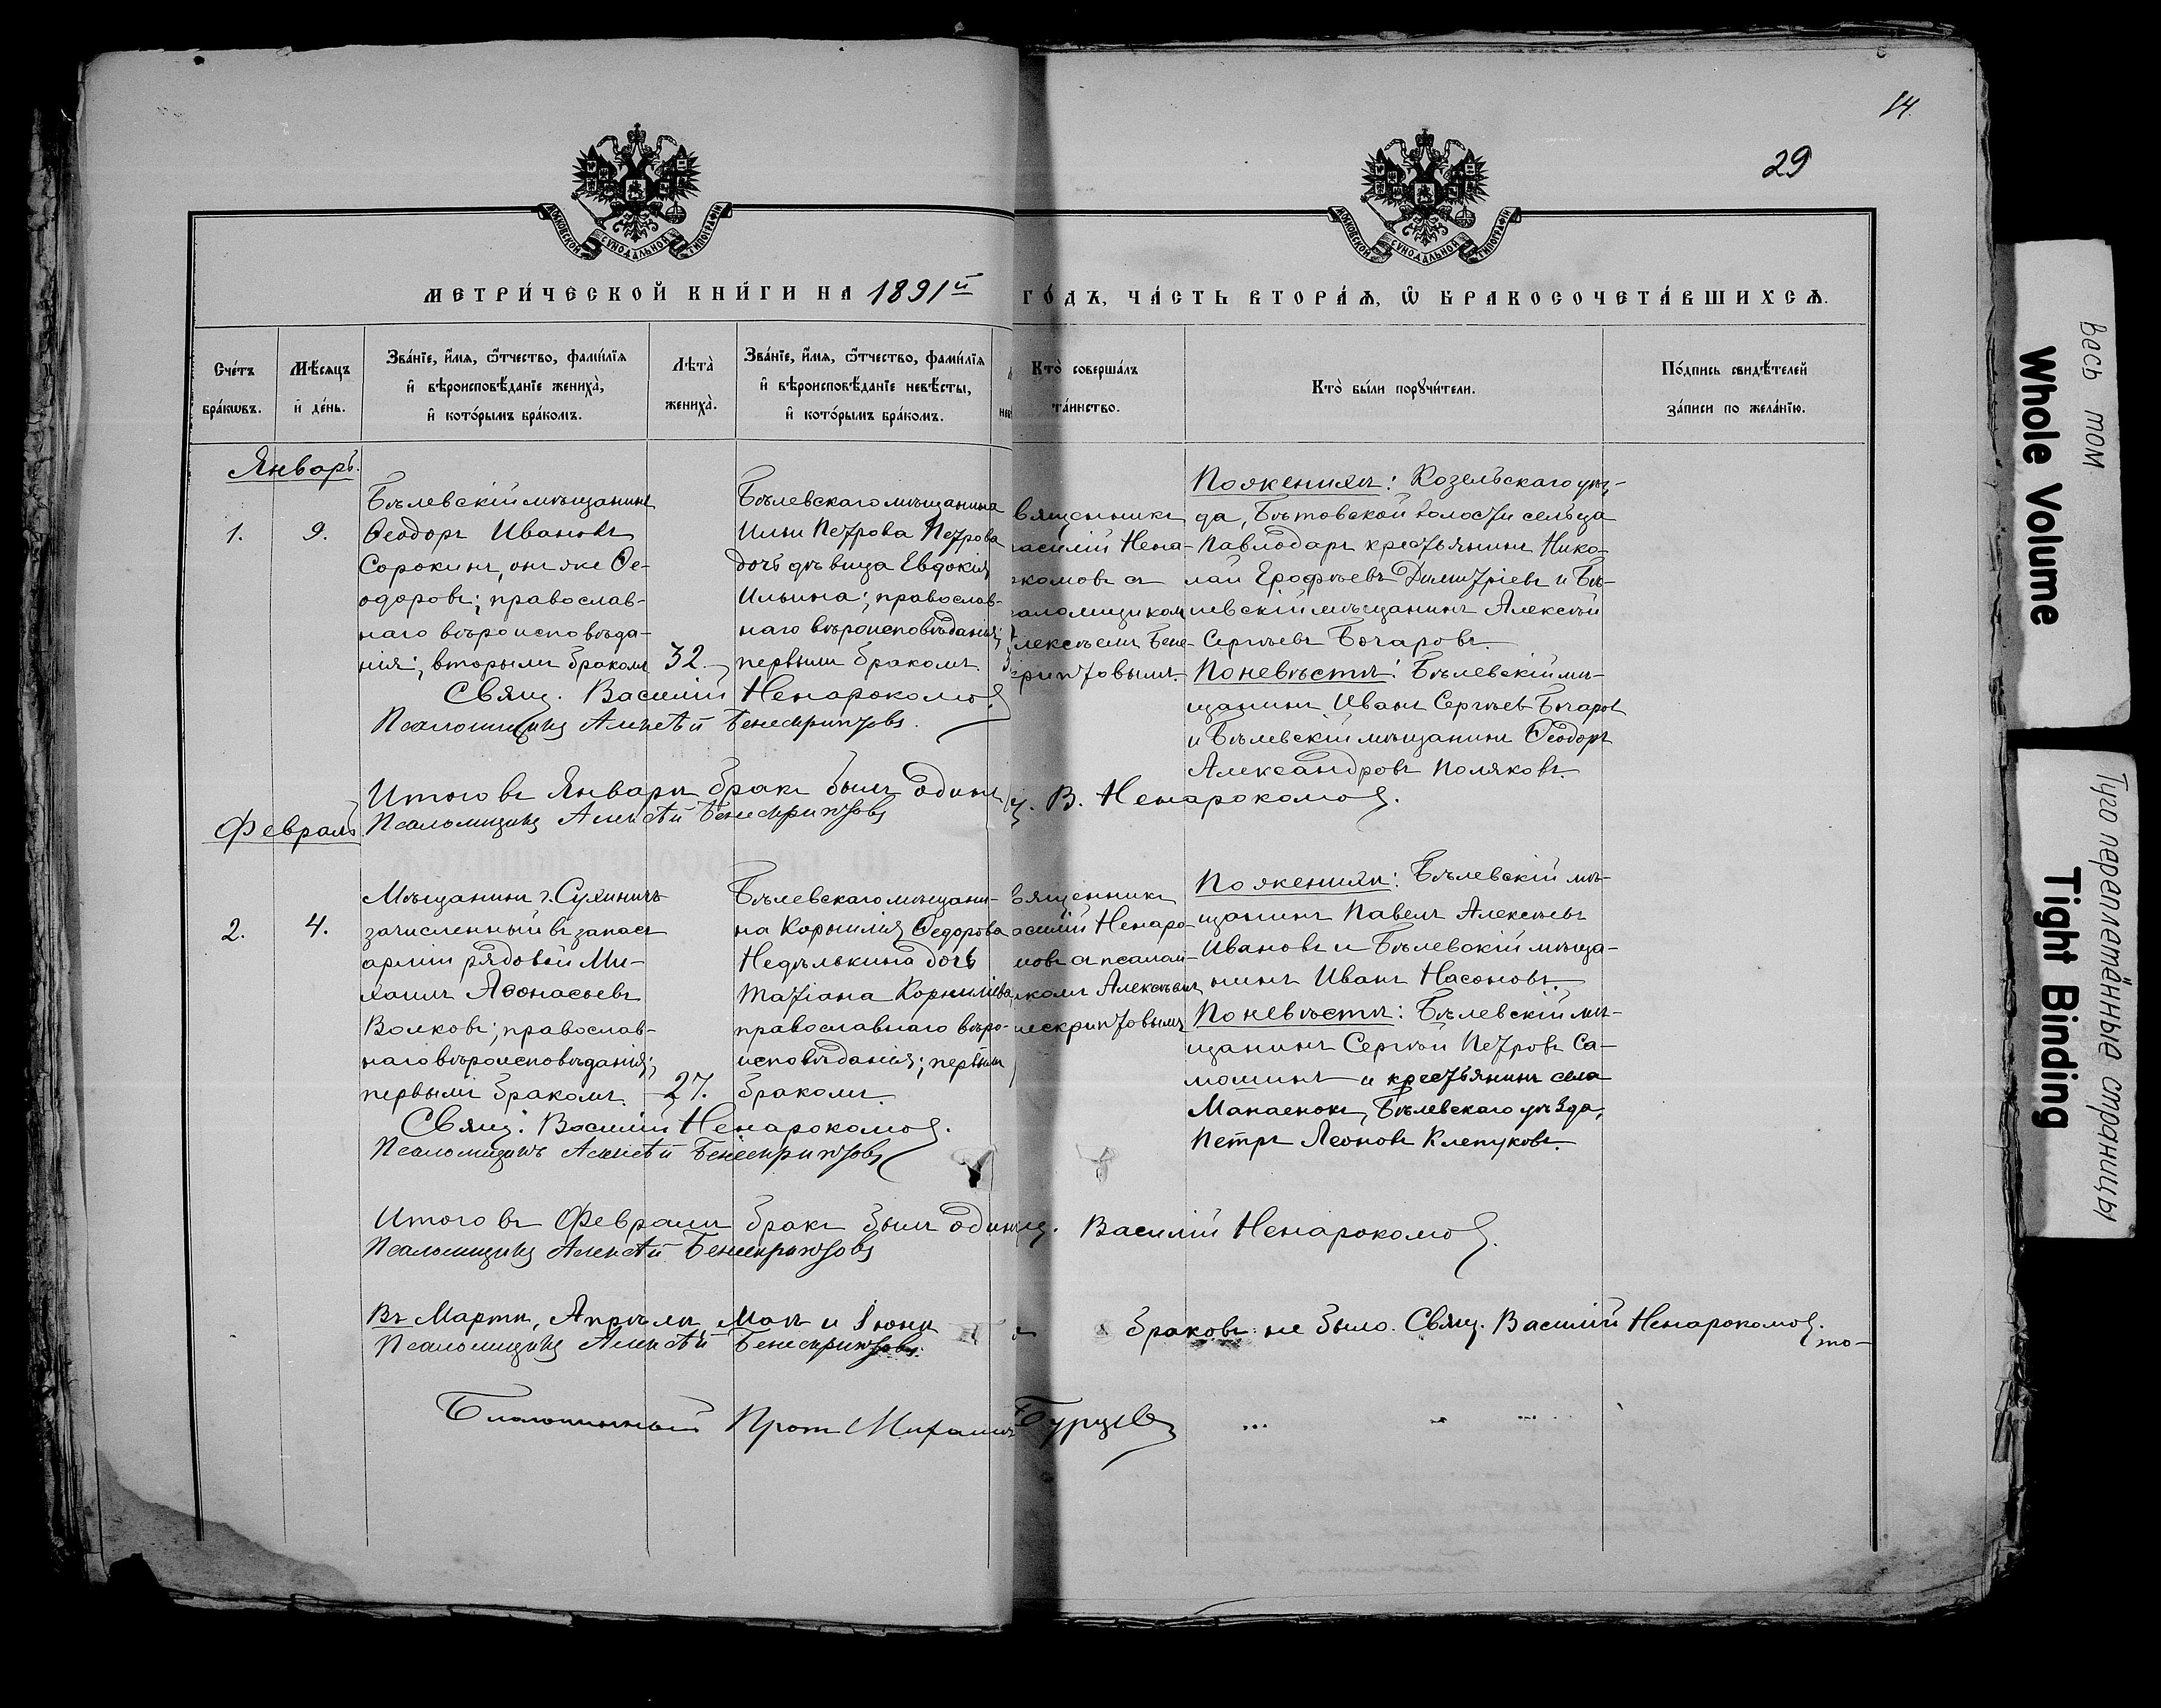 14.
29
МОСКОВСКОЙ СУНОДАЛЬНОЙ ТИПОГРАФІИ
МОСКОВСКОЙ СУНОДАЛЬНОЙ ТИПОГРАФІИ
МЕТРИ́ЧЕСКОЙ КНИ́ГИ НА 1891й ГО́ДЪ, ЧА́СТЬ ВТОРА́Ѧ, Ѡ҆ БРАКОСОЧЕТА́ВШИХСѦ.
Сче́тъ
бра́кѡвъ.
Мѣ́сѧцъ
и҆ де́нь.
Зва́нїе, и҆́мѧ, ѻ҆́тчество, фами́лїѧ
и҆ вѣроисповѣ́данїе жениха̀,
и҆ кото́рымъ бра́комъ.
Лѣта̀
жениха̀.
Зва́нїе, и҆́мѧ, ѻ҆́тчество, фами́лїѧ
и҆ вѣроисповѣ́данїе невѣ́сты,
и҆ кото́рымъ бра́комъ.
Кто̀ соверша́лъ
та́инство.
Кто̀ бы́ли порꙋчи́тели.
По́дпись свидѣ́телей
за́писи по жела́нїю.
Январь.
1.
9.
Бѣлевскій мѣщанинъ
Ѳеодоръ Ивановъ
Сорокинъ, онъ же Ѳе-
одоровъ; православ-
наго вѣроисповѣда-
нія; вторымъ бракомъ
32.
Бѣлевскаго мѣщанина
Ильи Петрова Петрова
дочь дѣвица Евдокія
Ильина; православ-
наго вѣроисповѣданія;
первымъ бракомъ.
вященникъ
асилій Нена-
комовъ съ
аломщикомъ
лексѣемъ Бене-
криптовымъ.
По женихѣ: Козельскаго уѣз-
да, Бѣтовской волости сельца
Павлодаръ крестьянинъ Нико-
лай Ерофѣевъ Димитріевъ и Бѣ-
левскій мѣщанинъ Алексѣй
Сергѣевъ Бочаровъ.
По невѣстѣ: Бѣлевскій мѣ-
щанинъ Иванъ Сергѣевъ Бочаровъ
и Бѣлевскій мѣщанинъ Ѳеодоръ
Александровъ Поляковъ.
Свящ. Василій Ненарокомовъ.
Псаломщикъ Алексѣй Бенескриптовъ.
Итого въ Январѣ бракъ былъ одинъ. В. Ненарокомовъ.
Псаломщикъ Алексѣй Бенескриптовъ
Февраль
2.
4.
Мѣщанинъ г. Сухиничъ
зачисленный въ запасъ
арміи рядовой Ми-
хаилъ Аѳонасьевъ
Волковъ; православ-
наго вѣроисповѣданія;
первымъ бракомъ.
27.
Бѣлевскаго мѣщани-
на Корнилія Ѳедорова
Недѣлькина дочь
Татіана Корниліева,
православнаго вѣро-
исповѣданія; первымъ
бракомъ.
вященникъ
асилій Ненаро-
мовъ съ псалом-
комъ Алексѣемъ
нескриптовымъ
По женихѣ: Бѣлевскій мѣ-
щанинъ Павелъ Алексѣевъ
Ивановъ и Бѣлевскій мѣща-
нинъ Иванъ Насоновъ.
По невѣстѣ: Бѣлевскій мѣ-
щанинъ Сергѣй Петровъ Са-
мошинъ и крестьянинъ села
Манаенокъ, Бѣлевскаго уѣзда,
Петръ Леоновъ Клепуковъ.
Свящ. Василій Ненарокомовъ.
Псаломщикъ Алексѣй Бенескриптовъ
Итого въ Февралѣ бракъ былъ одинъ. Василій Ненарокомовъ.
Псаломщикъ Алексѣй Бенескриптовъ
Въ Мартѣ, Апрѣлѣ, Маѣ и Іюнѣ браковъ не было. Свящ. Василій Ненарокомовъ.
Псаломщикъ Алексѣй Бенескриптовъ. то-
Благочинный Прот Михаилъ Бурцевъ
весь том
Whole Volume
Туго переплетённые страницы
Tight Binding